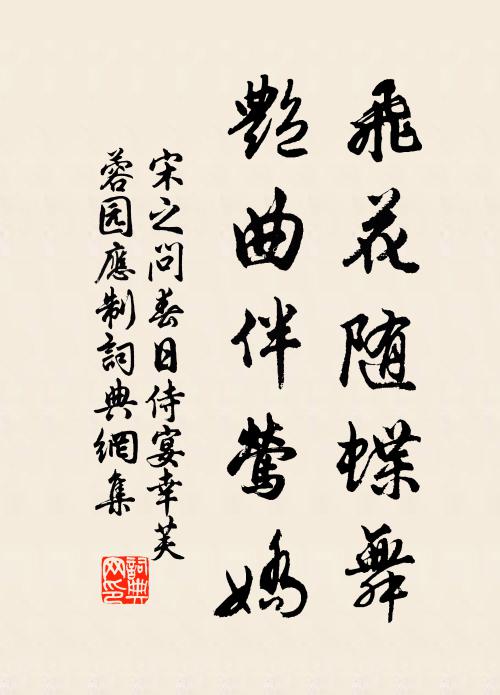 飛花随蝶舞
艷曲伴鶯嬌
宋之问春日侍宴幸芙
蓉园應制詞典網集
詞典网印